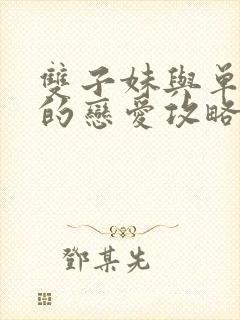 雙子妹與單
的戀愛攻略
鄧某先